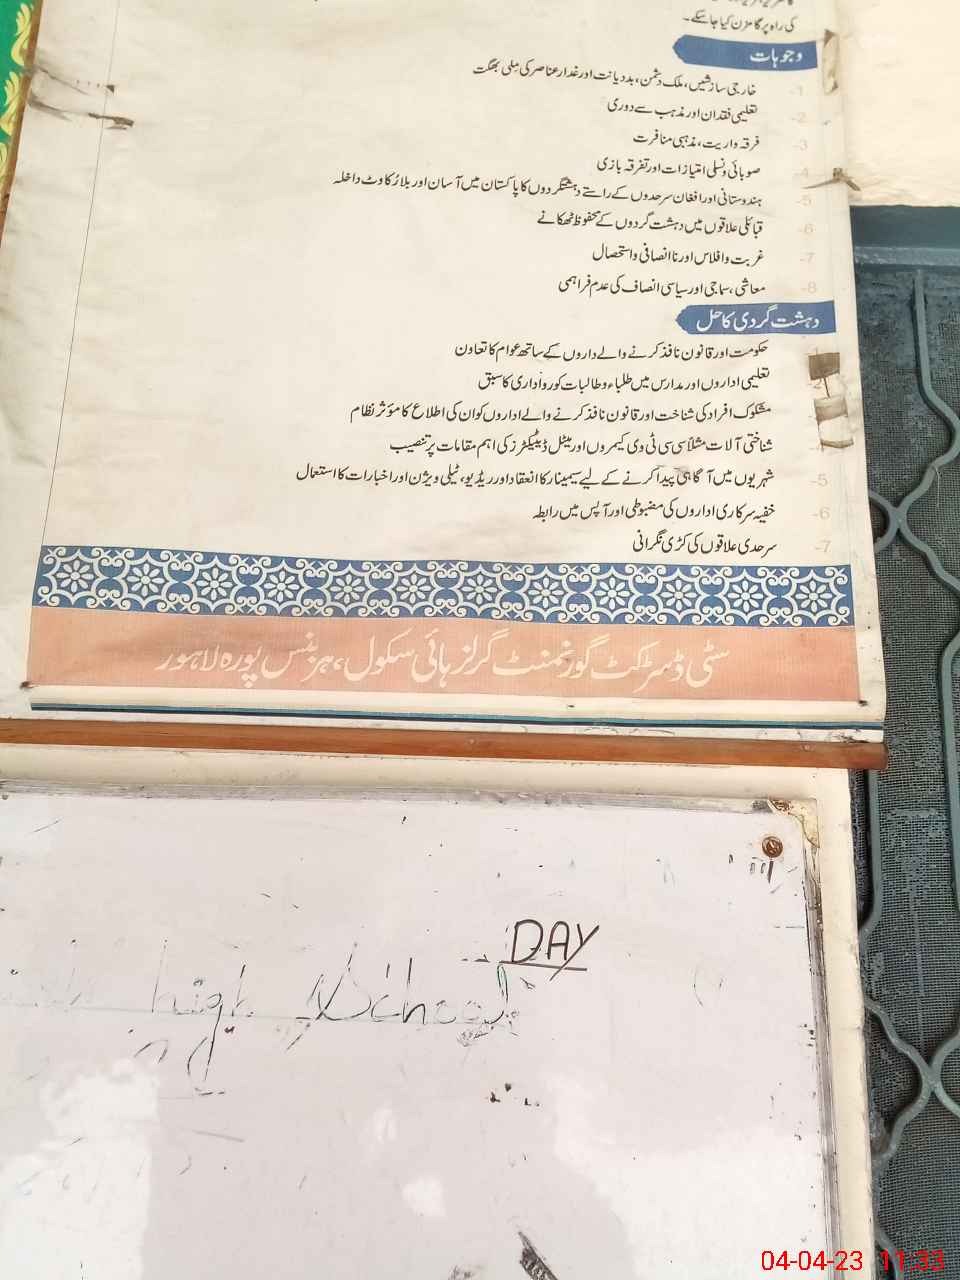 کی راہ پر گامزن کیا جا سکے۔
وجوہات
1- خارجی سازشیں، ملک دشمن، بددیانت اور غدار عناصر کی ملی بھگت
2- تعلیمی فقدان اور مذہب سے دوری
3- فرقہ واریت، مذہبی منافرت
4- صوبائی و نسلی امتیازات اور تفرقہ بازی
5- ہندوستانی اور افغان سرحدوں کے راستے دہشتگردوں کا پاکستان میں آسان اور بلا رُکاوٹ داخلہ
6- قبائلی علاقوں میں دہشت گردوں کے محفوظ ٹھکانے
7- غربت و افلاس اور ناانصافی و استحصال
8- معاشی، سماجی اور سیاسی انصاف کی عدم فراہمی
دہشت گردی کا حل
1- حکومت اور قانون نافذ کرنے والے داروں کے ساتھ عوام کا تعاون
2- تعلیمی اداروں اور مدارس میں طلباء و طالبات کو رواداری کا سبق
مشکوک افراد کی شناخت اور قانون نافذ کرنے والے اداروں کو ان کی اطلاع کا مؤثر نظام
4- شناختی آلات مثلاً سی سی ٹی وی کیمروں اور میٹل ڈیٹیکٹرز کی اہم مقامات پر تنصیب
5- شہریوں میں آگاہی پیدا کرنے کے لیے سیمینار کا انعقاد اور ریڈیو، ٹیلی ویژن اور اخبارات کا استعمال
6- خفیہ سرکاری اداروں کی مضبوطی اور آپس میں رابطہ
7- سرحدی علاقوں کی کڑی نگرانی
سٹی ڈسٹرکٹ گورنمنٹ گرلز ہائی سکول، ہربنس پورہ لاہور
DAY
high School
04-04-23 11:33